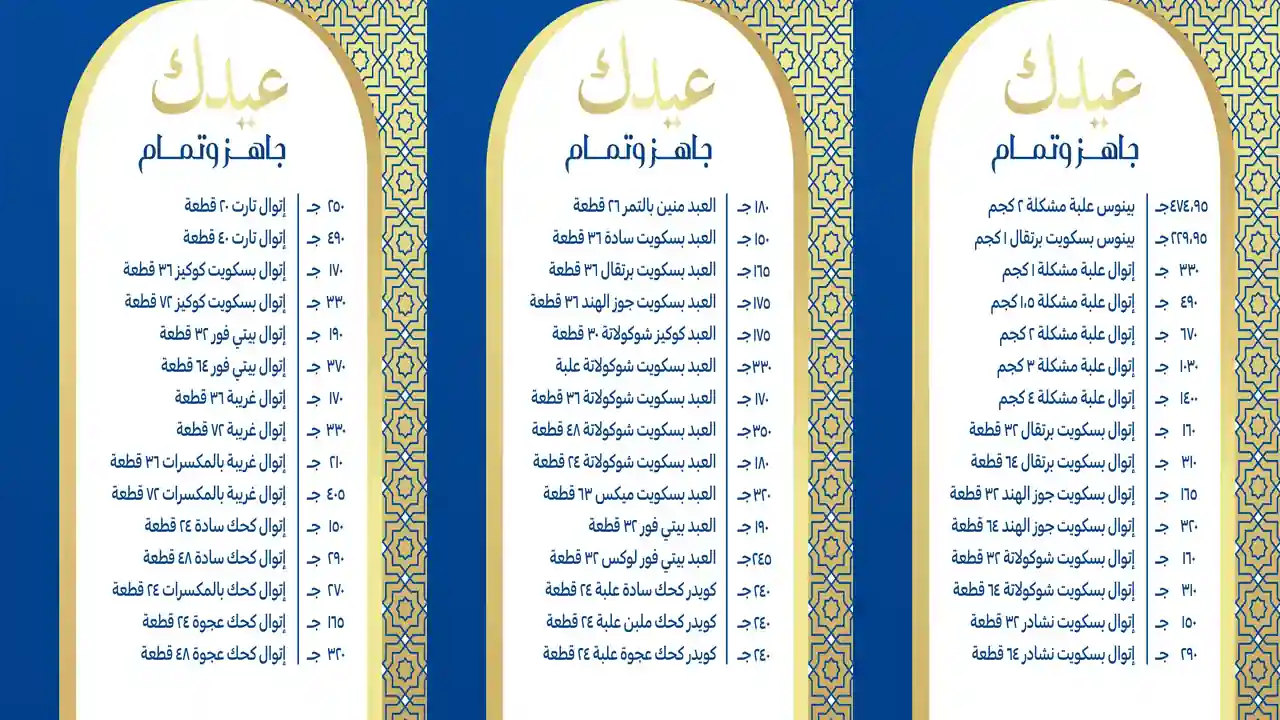 عيدك
جاهز وتمام
٤٧٤،٩٥جـ بينوس علبة مشكلة ٢ كجم
٢٢٩،٩٥جـ بينوس بسكويت برتقال ١ كجم
٣٣٠ جـ إتوال علبة مشكلة ١ كجم
٤٩٠ جـ إتوال علبة مشكلة ١،٥ كجم
٦٧٠ جـ إتوال علبة مشكلة ٢ كجم
١٠٣٠ جـ إتوال علبة مشكلة ٣ كجم
١٤٠٠ جـ إتوال علبة مشكلة ٤ كجم
١٦٠ جـ إتوال بسكويت برتقال ٣٢ قطعة
٣١٠ جـ إتوال بسكويت برتقال ٦٤ قطعة
١٦٥ جـ إتوال بسكويت جوز الهند ٣٢ قطعة
٣٢٠ جـ إتوال بسكويت جوز الهند ٦٤ قطعة
١٦٠ جـ إتوال بسكويت شوكولاتة ٣٢ قطعة
٣١٠ جـ إتوال بسكويت شوكولاتة ٦٤ قطعة
١٥٠ جـ إتوال بسكويت نشادر ٣٢ قطعة
٢٩٠ جـ إتوال بسكويت نشادر ٦٤ قطعة
عيدك
جاهز وتمام
١٨٠ جـ العبد منين بالتمر ٢٦ قطعة
١٥٠ جـ العبد بسكويت سادة ٣٦ قطعة
١٦٥ جـ العبد بسكويت برتقال ٣٦ قطعة
١٧٥جـ العبد بسكويت جوز الهند ٣٦ قطعة
١٧٥جـ العبد كوكيز شوكولاتة ٣٠ قطعة
٣٣٠جـ العبد بسكويت شوكولاتة علبة
١٧٠ جـ العبد بسكويت شوكولاتة ٣٦ قطعة
٣٥٠جـ العبد بسكويت شوكولاتة ٤٨ قطعة
١٨٠ جـ العبد بسكويت شوكولاتة ٢٤ قطعة
٣٢٠ جـ العبد بسكويت ميكس ٦٣ قطعة
١٩٠ جـ العبد بيتي فور ٣٢ قطعة
٢٤٥جـ العبد بيتي فور لوكس ٣٢ قطعة
٢٤٠ جـ كويدر كحك سادة علبة ٢٤ قطعة
٢٤٠ جـ كويدر كحك ملبن علبة ٢٤ قطعة
٢٤٠ جـ كويدر كحك عجوة علبة ٢٤ قطعة
عيدك
جاهز وتمام
٢٥٠ جـ إتوال تارت ٢٠ قطعة
٤٩٠ جـ إتوال تارت ٤٠ قطعة
١٧٠ جـ إتوال بسكويت كوكيز ٣٦ قطعة
٣٣٠ جـ إتوال بسكويت كوكيز ٧٢ قطعة
١٩٠ جـ إتوال بيتي فور ٣٢ قطعة
٣٧٠ جـ إتوال بيتي فور ٦٤ قطعة
١٧٠ جـ إتوال غريبة ٣٦ قطعة
٣٣٠ جـ إتوال غريبة ٧٢ قطعة
٢١٠ جـ إتوال غريبة بالمكسرات ٣٦ قطعة
٤٠٥ جـ إتوال غريبة بالمكسرات ٧٢ قطعة
١٥٠ جـ إتوال كحك سادة ٢٤ قطعة
٢٩٠ جـ إتوال كحك سادة ٤٨ قطعة
٢٧٠ جـ إتوال كحك بالمكسرات ٢٤ قطعة
١٦٥ جـ إتوال كحك عجوة ٢٤ قطعة
٣٢٠ جـ إتوال كحك عجوة ٤٨ قطعة